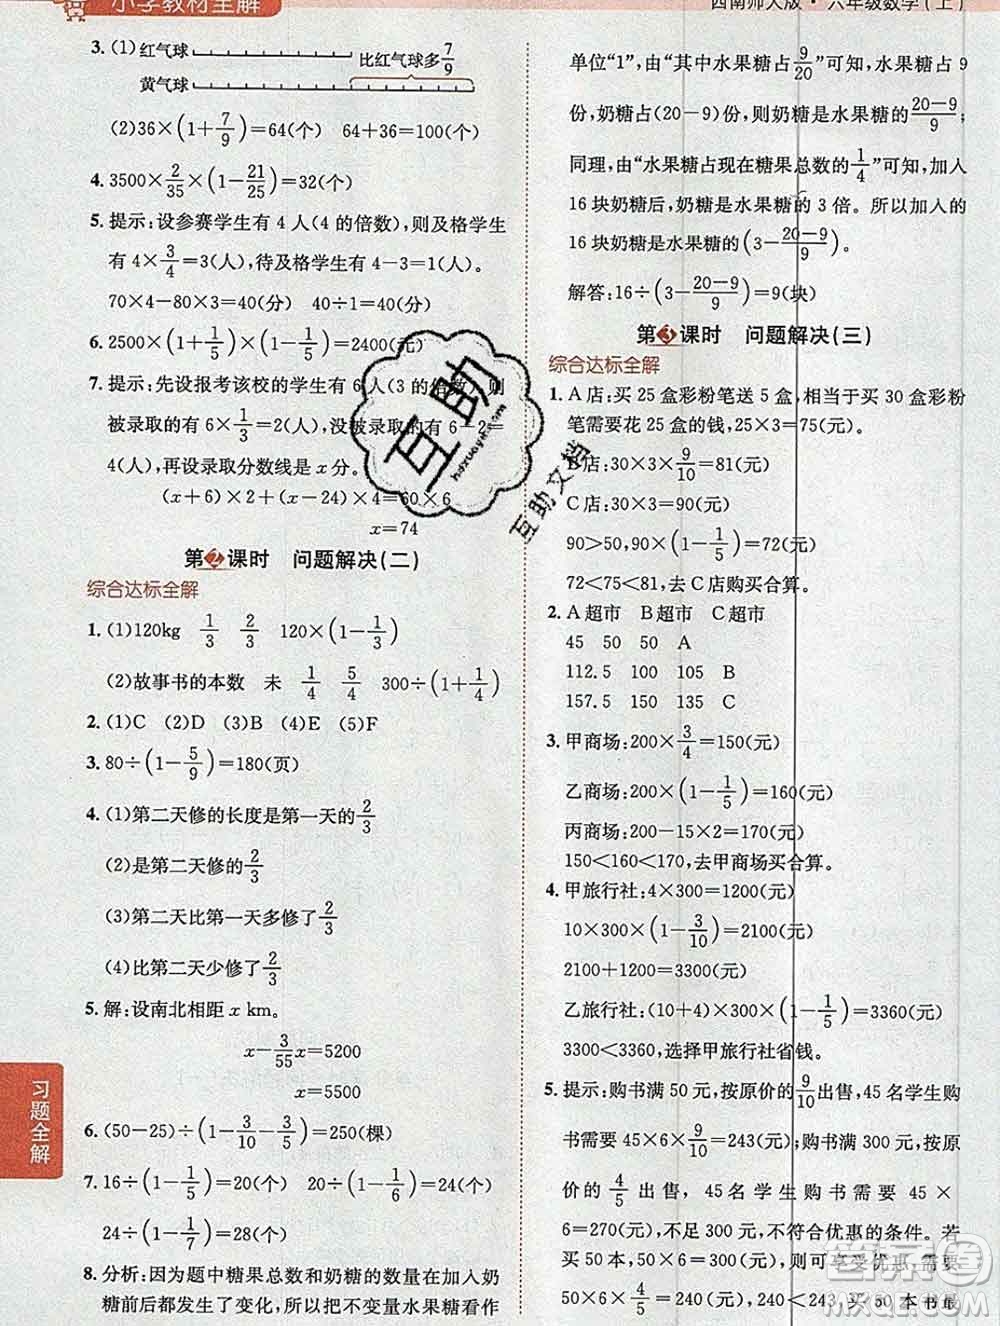 小学教材全解
西南师大版·六年级数学(上)
3. (1)红气球 比红气球多7/9
黄气球
(2)36×(1+7/9)=64(个) 64+36=100(个)
4. 3500×2/35×(1-21/25)=32(个)
5. 提示:设参赛学生有 4 人(4 的倍数),则及格学生
有 4×3/4=3(人),待及格学生有 4-3=1(人)。
70×4-80×3=40(分) 40÷1=40(分)
6. 2500×(1+1/5)×(1-1/5)=2400(元)
7. 提示:先设报考该校的学生有 6 人(3 的倍数)则
被录取的有 6×1/3=2(人),没被录取的有 6-2=
4(人),再设录取分数线是 x 分。
(x+6)×2+(x-24)×4=60×6
x=74
第2课时 问题解决(二)
综合达标全解
1. (1)120kg 1/3 2/3 120×(1-1/3)
(2)故事书的本数 未 1/4 5/4 300÷(1+1/4)
2. (1)C (2)D (3)B (4)E (5)F
3. 80÷(1-5/9)=180(页)
4. (1)第二天修的长度是第一天的2/3
(2)是第二天修的2/3
(3)第二天比第一天多修了2/3
(4)比第二天少修了2/3
5. 解:设南北相距 x km。
x-3/55x=5200
x=5500
6. (50-25)÷(1-3/10-3/5)=250(棵)
7. 16÷(1-1/5)=20(个) 20÷(1-1/6)=24(个)
24÷(1-1/7)=28(个)
8. 分析:因为题中糖果总数和奶糖的数量在加入奶
糖前后都发生了变化,所以把不变量水果糖看作
单位“1”,由“其中水果糖占9/20”可知,水果糖占 9
份,奶糖占(20-9)份,则奶糖是水果糖的20-9/9;
同理,由“水果糖占现在糖果总数的1/4”可知,加入
16 块奶糖后,奶糖是水果糖的 3 倍。所以加入的
16 块奶糖是水果糖的(3-20-9/9)。
解答:16÷(3-20-9/9)=9(块)
第3课时 问题解决(三)
综合达标全解
1. A 店:买 25 盒彩粉笔送 5 盒,相当于买 30 盒彩粉
笔需要花 25 盒的钱,25×3=75(元)。
B 店:30×3×9/10=81(元)
C 店:30×3=90(元)
90>50,90×(1-1/5)=72(元)
72<75<81,去 C 店购买合算。
2. A 超市 B 超市 C 超市
45 50 50 A
112.5 100 105 B
157.5 150 135 C
3. 甲商场:200×3/4=150(元)
乙商场:200×(1-1/5)=160(元)
丙商场:200-15×2=170(元)
150<160<170,去甲商场买合算。
4. 甲旅行社:4×300=1200(元)
10×300×(1-3/10)=2100(元)
2100+1200=3300(元)
乙旅行社:(10+4)×300×(1-1/5)=3360(元)
3300<3360,选择甲旅行社省钱。
5. 提示:购书满 50 元,按原价的9/10出售,45 名学生购
书需要 45×6×9/10=243(元);购书满 300 元,按原
价的 4/5 出售,45 名学生购书需要 45×
6=270(元),不足 300 元,不符合优惠的条件。若
买 50 本,50×6=300(元),则可享受优惠,需要
50×6×4/5=240(元),240<243,买 50 本书最
习题全解
互助
hdzuoye.com
互助文档
答案圈